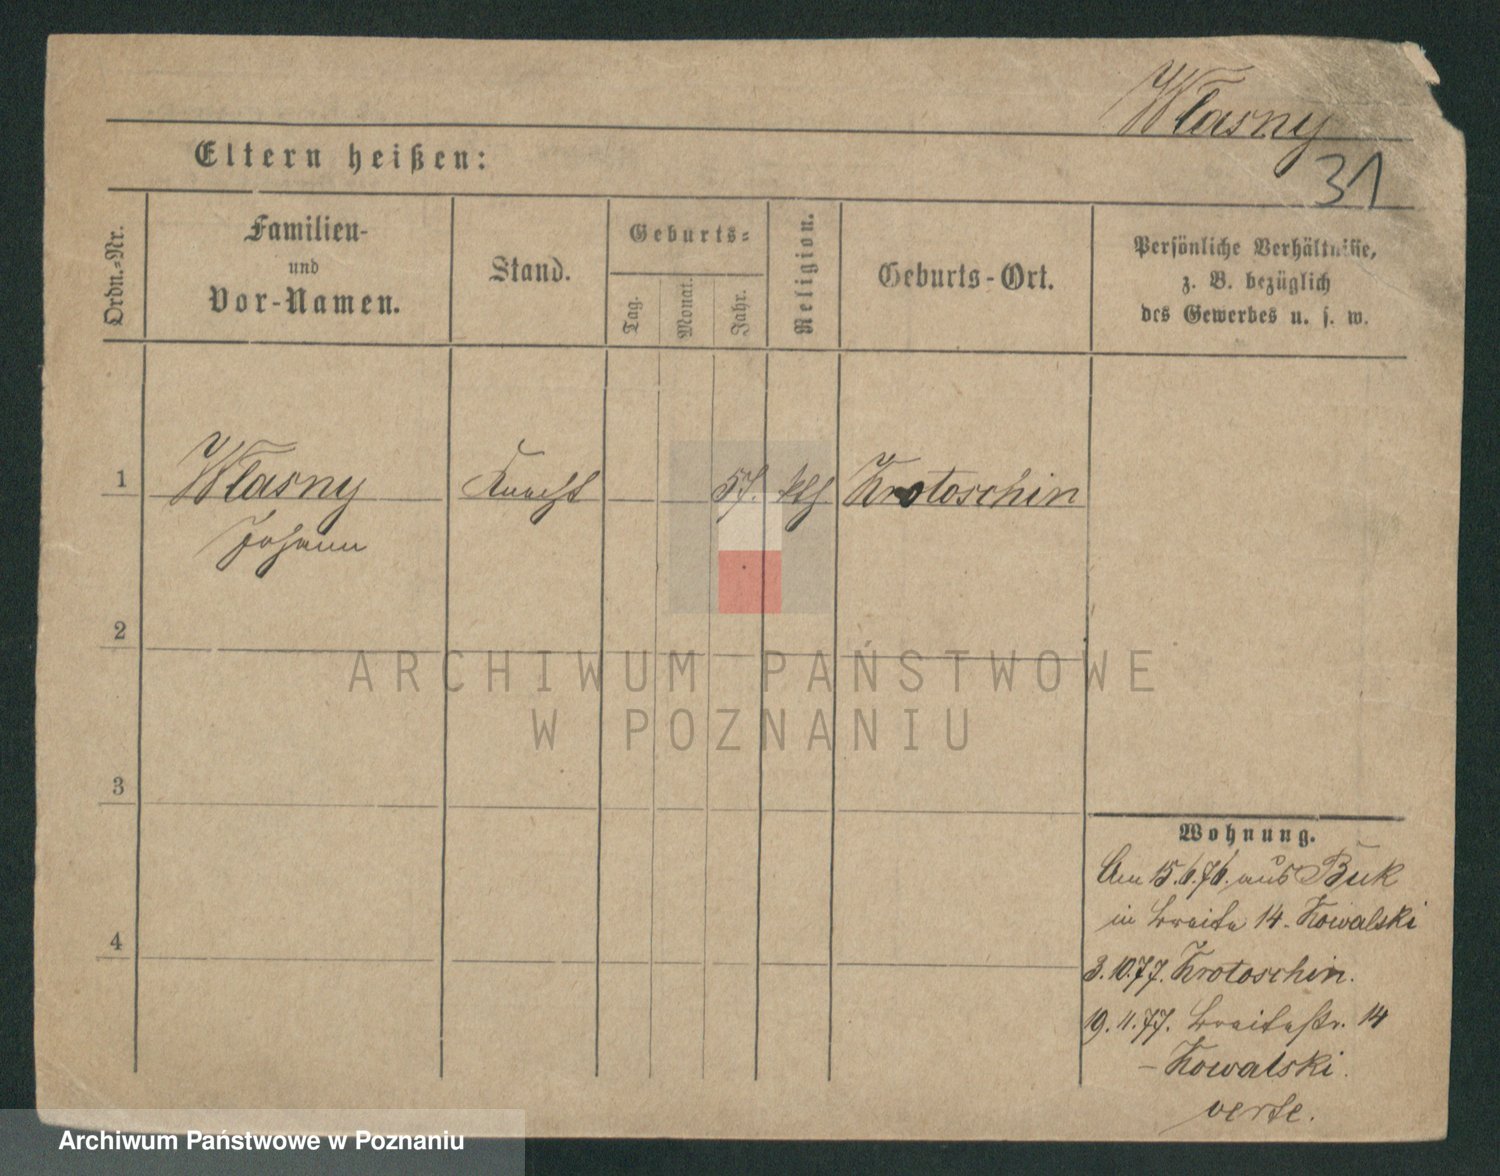 Własny
31
Eltern heißen:
Ordn.-Nr.
Familien-
und
Vor-Namen.
Stand.
Geburts-
Tag.
Monat.
Jahr.
Religion.
Geburts-Ort.
Persönliche Verhältnisse,
z. B. bezüglich
des Gewerbes u. s. w.
1 Własny Knecht 57. ktlh Krotoschin
Johann
2
3
4
ARCHIWUM PAŃSTWOWE
W POZNANIU
Wohnung.
Am 15.6.76. aus Buk
in Breite 14. Kowalski
3.10.77. Krotoschin.
19.11.77. Breitestr. 14
– Kowalski.
verte.
Archiwum Państwowe w Poznaniu